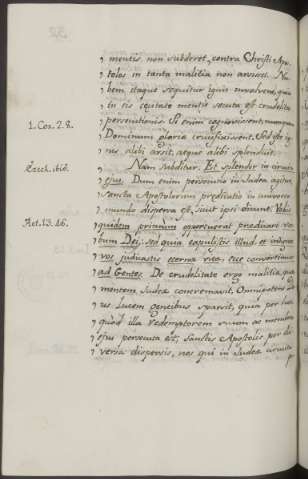 mentis non subderet, contra Christi Apo-
tolos in tanta malitia non arsisset. Nu-
bem itaque sequitur ignis involvens, quia
in eis cecitatem mentis secuta est crudelitas
persecutionis. Si enim cognovissent, nunquam
1. Cor. 2. 8. Dominum gloriæ crucifixissent. Sed iste ig-
nis alibi arsit, atque alibi splenduit.
Ezech. ibid. Nam subditur. Et splendor in circuitu
ejus. Dum enim persecutio in Judea agitur,
sancta Apostolorum predicatio in universo
mundo dispersa est, sicut ipsi dicunt. Vobis
Act. 13. 46. quidem primum oportuerat predicari ver-
bum Dei; sed quia expulistis illud, et indignos
vos judicastis eterna vita, ecce convertimur
ad Gentes. De crudelitate ergo malitia, qua
mentem Judea concremavit, Omnipotens De-
us lucem gentibus sparsit, quia per hoc,
quod illa Redemptorem in membris
ejus persecuta est, sanctis Apostolis per di-
versa dispersis, nos qui in Judea circuitu